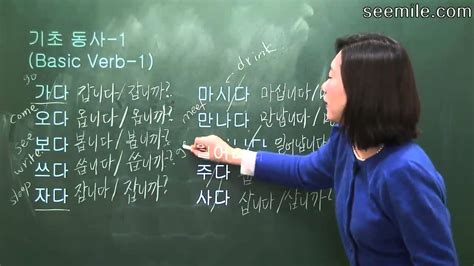 seemile.com
기초 동사-1
(Basic Verb-1)
go
가다 갑니다/갑니까?
come
오다 옵니다/옵니까?
see
보다 봅니다/봅니까?
write
쓰다 씁니다/씁니까?
sleep
자다 잡니다/잡니까?
drink
마시다 마십니다/
meet
만나다 만납니다/
일어납니다/
주다
사다 삽니다/삽니까?